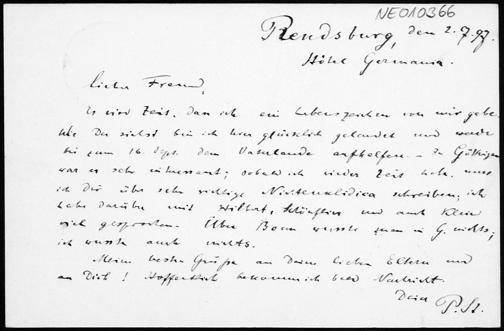 NE010366
Rendsburg, den 2.9.97.
Hôtel Germania.
Lieber Freund,
Es wird Zeit, dass ich ein Lebenszeichen von mir gebe.
Wie Du siehst bin ich hier glücklich gelandet und werde
bis zum 16. Sept. dem Vaterlande aufhelfen. – In Göttingen
war es sehr interessant; sobald ich wieder Zeit habe, muss
ich Dir über sehr wichtige schreiben; ich
habe darüber mit Hilbert, Schönflies und auch Klein
viel gesprochen. Über Bonn wusste man in G. nichts;
ich wusste auch nichts.
Meine besten Grüsse an Deine lieben Eltern und
an Dich! Hoffentlich bekomme ich bald Nachricht.
Dein
P. St.